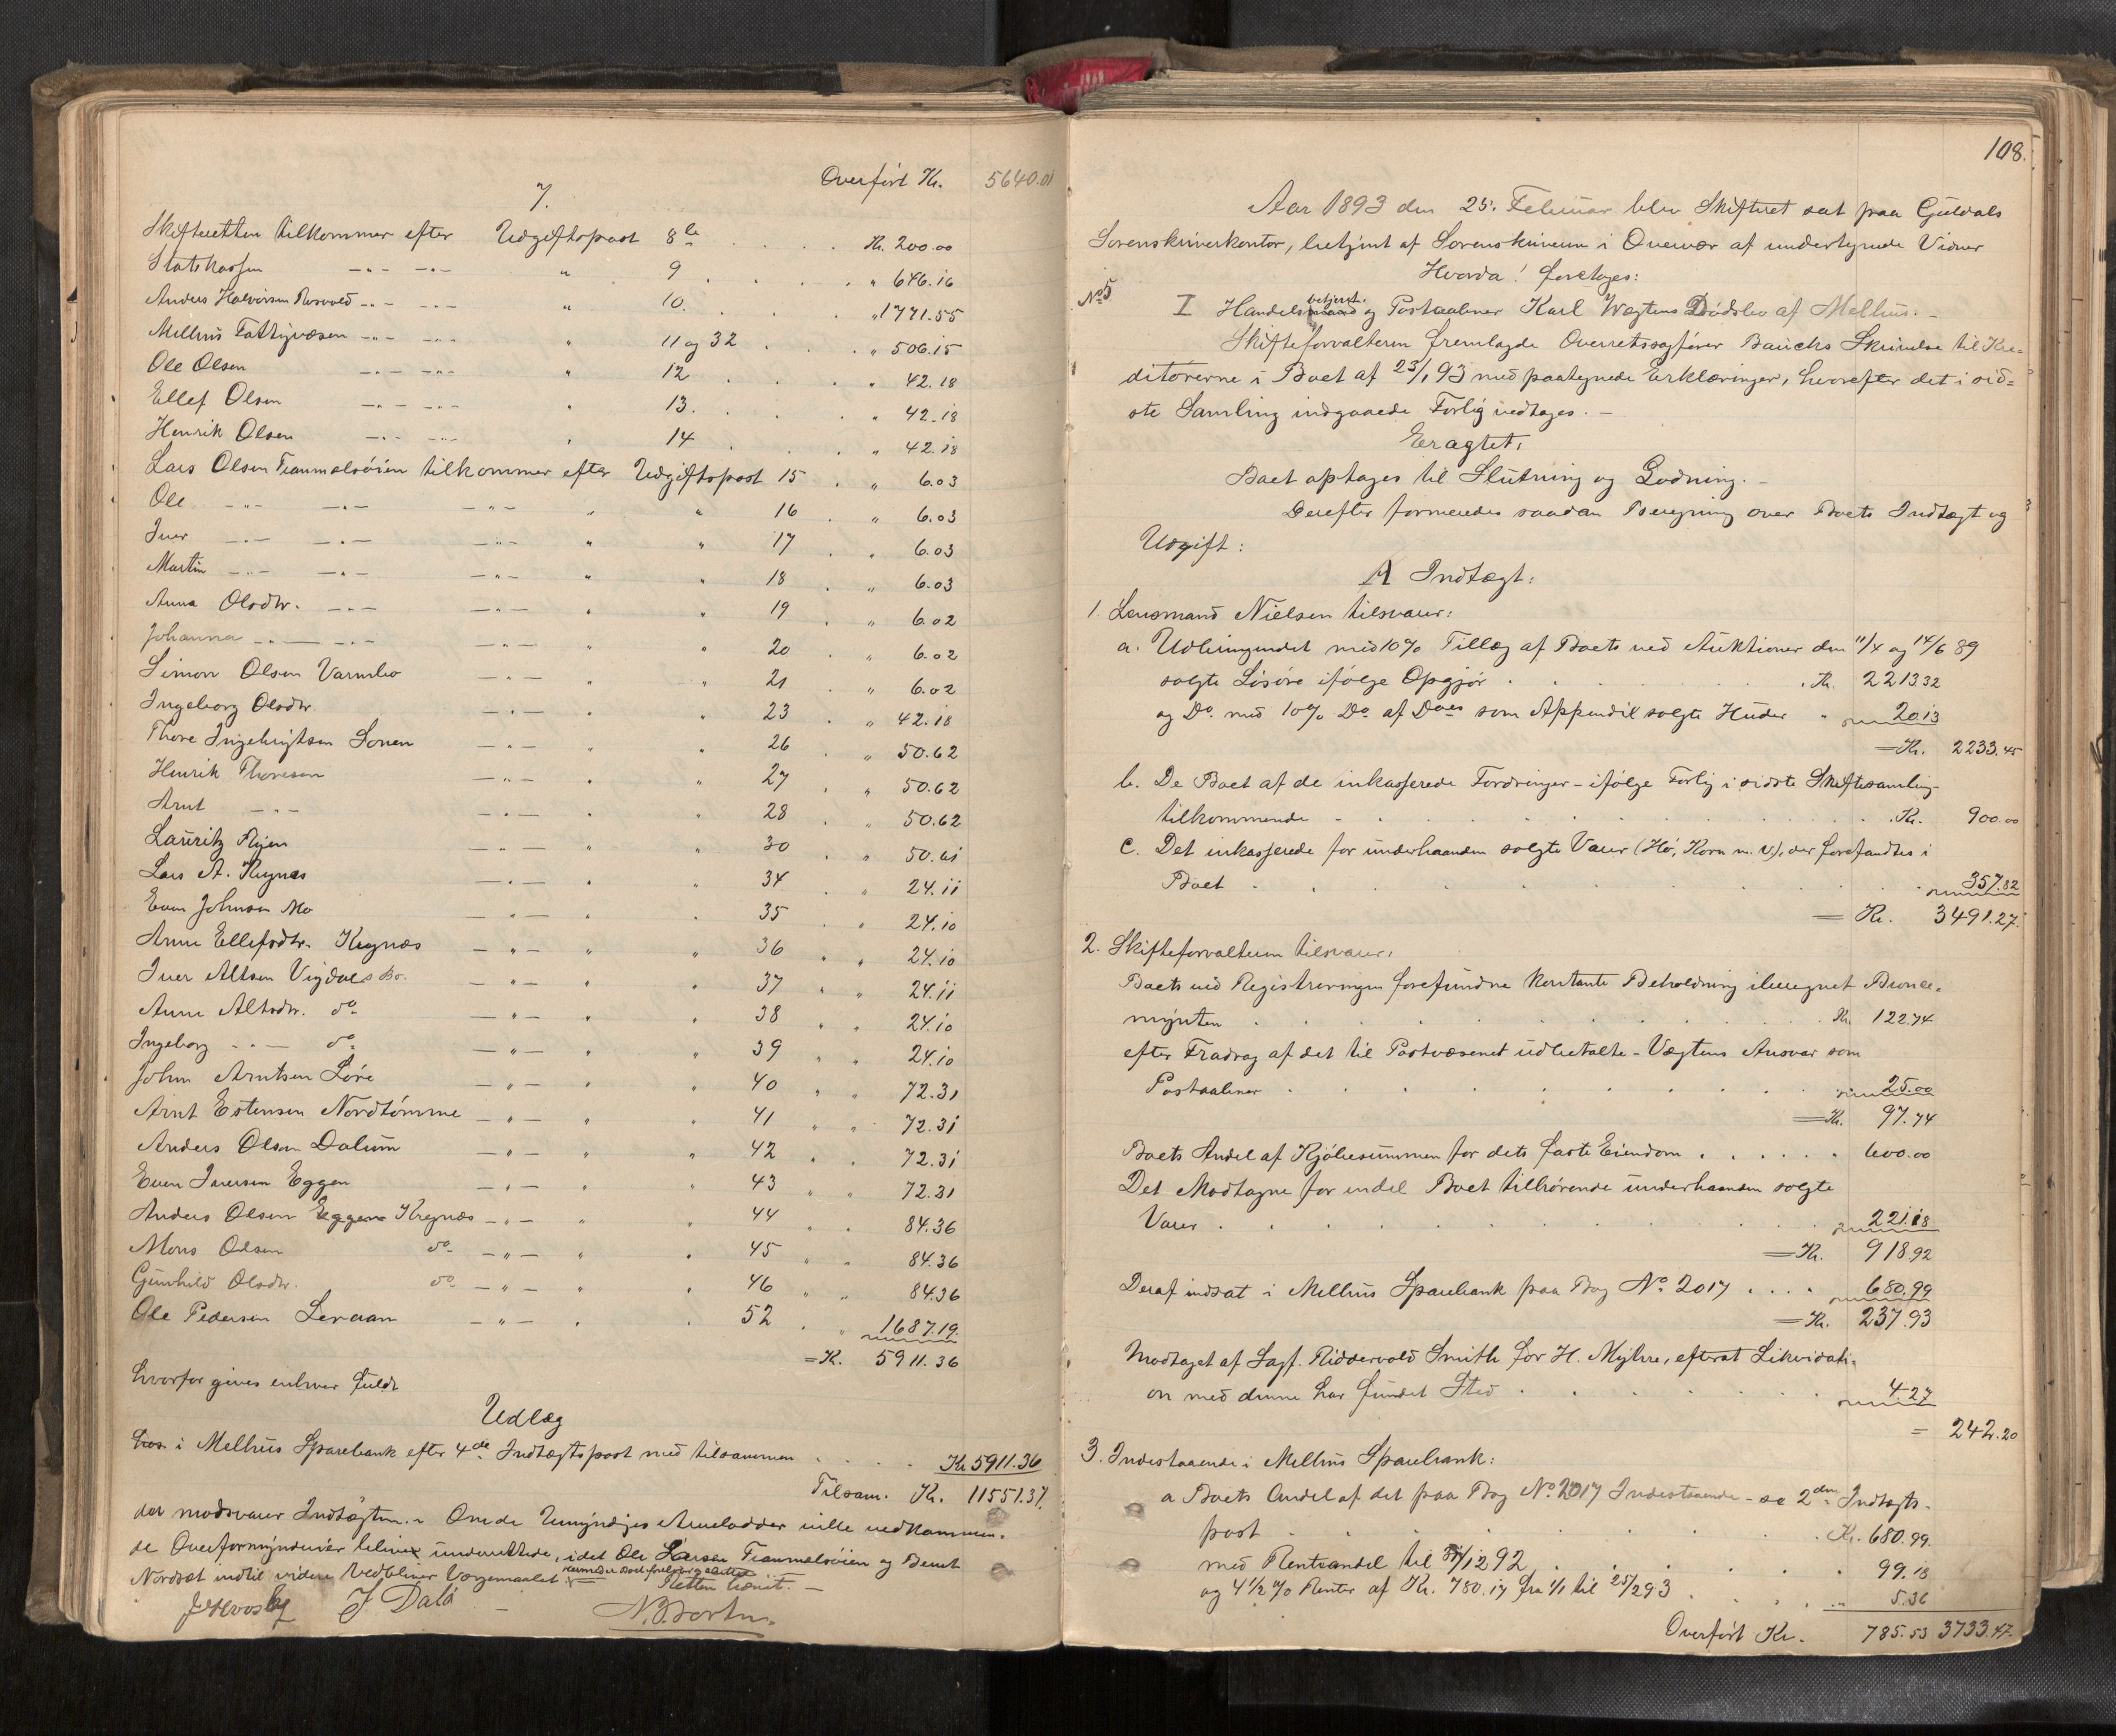 Overført Kr. 5640.01
7.
Skifteretten tilkommer efter Udgiftspost 8de . . . . Kr. 200.00
Statskassen —"— —"— " 9 . . . . " 646.16
Anders Halvorsen Rosvold —"— —"— " 10. . . . "1771.55
Melhus Fattigvæsen —"— —"— " 11 og 32 . . . " 506.15
Ole Olsen —"— —"— " 12 . . . " 42.18
Ellef Olsen —"— —"— " 13. . . . " 42.18
Henrik Olsen —"— —"— " 14 . . . " 42.18
Lars Olsen Trammelsøien tilkommer efter Udgiftspost 15 . " 6.03
Ole —"— —"— —"— " " 16 . " 6.03
Iver —"— —"— —"— " " 17 . " 6.03
Martin —"— —"— —"— " " 18 . " 6.03
Anna Olsdtr. —"— —"— " " 19 . " 6.02
Johanna —"— —"— —"— " " 20 . " 6.02
Simon Olsen Varmbo —"— " " 21 . " 6.02
Ingeborg Olsdtr. —"— " " 23 . " 42.18
Thore Ingebrigtsen Lonen —"— " " 26 . " 50.62
Henrik Thoresen —"— " " 27 . " 50.62
Arnt —"— —"— " " 28 . " 50.62
Lauritz Rijen —"— " " 30 . " 50.61
Lars A. Kregnæs —"— " " 34 . " 24.11
Even Johnsen Mo —"— " " 35 . " 24.10
Anne Ellefsdtr. Kregnæs —"— " " 36 " " 24.10
Iver Altsen Vigdals bo. —"— " " 37 " " 24.11
Anne Altsdtr. do —"— " " 38 " " 24.10
Ingeborg —"— do —"— " " 39 " " 24.10
John Arntsen Løre —"— " " 40 " " 72.31
Arnt Estensen Nordtømme —"— " " 41 " " 72.31
Anders Olsen Dalum —"— " " 42 " " 72.31
Even Iversen Eggen —"— " " 43 " " 72.31
Anders Olsen Eggen Kregnæs —"— " " 44 " " 84.36
Mons Olsen do —"— " " 45 " " 84.36
Gunhild Olsdtr. do —"— " " 46 " " 84.36
Ole Pedersen Leraan —"— " " 52 . " 1687.19.
= K. 5911.36
hvorfor gives enhver fuldt
Udlæg
hos i Melhus Sparebank efter 4de Indtægtspost med tilsammen . . . . Kr 5911.36
Tilsam. Kr. 11551.37.
der modsvarer Indtægten. - Om de Umyndiges Arvelodder ville vedkommen-
de Overformynderier blive underrettede, idet Ole Larsen Trammelsøien og Bernt
Nordsæt indtil videre vedbliver Værgemaalet
Retten hævet. —
J Dala
108.
Aar 1893 den 25. Februar blev Skifteret sat paa Guldals
Sorenskriverkontor, betjent af Sorenskriveren i Overvær af undertegnede Vidner
Hvorda! foretoges:
No 5
betjent.
I Handelsmand og Postaabner Karl Wægtens Dødsbo af Melhus. —
Skifteforvalteren fremlagde Overretssagfører Bauchs Skrivelse til Kre-
ditorerne i Boet af 23/1 93 med paategnede Erklæringer, hvorefter det i sid-
ste Samling indgaaede Forlig vedtages. —
Eragtet:
Boet optages til Slutning og Lodning. —
Derefter formeredes saadan Beregning over Boets Indtægt og
Udgift:
A Indtægt:
1. Lensmand Nielsen tilsvarer:
a. Udbringendet med 10% Tillæg af Boets ved Auktioner den 11/4 og 14/6 89
solgte Løsøre ifølge Opgjør . . . . Kr. 2213.32
og Do. med 10% Do. af Does som Appendix solgte Huder " 20.13
= Kr. 2233.45
b. De Boet af de inkasserede Fordringer - ifølge Forlig i sidste Skiftesamling -
tilkommende . . . . . Kr. 900.00
c. Det inkasserede for underhaanden solgte Varer (Hø, Korn m. v.), der forefandtes i
Boet . . . . . 357.82
= Kr. 3491.27.
2. Skifteforvalteren tilsvarer:
Boets ved Registreringen forefundne kontante Beholdning iberegnet Bronce-
mynten . . . . . Kr. 122.74
efter Fradrag af det til Postvæsenet udbetalte - Vægtens Ansvar som
Postaabner . . . . . 25.00
= Kr. 97.74
Boets Andel af Kjøbesummen for dets faste Eiendom . . . . . " 600.00
Det Modtagne for endel Boet tilhørende underhaanden solgte
Varer . . . . . 221.18
= Kr. 918.92
Deraf indsat i Melhus Sparebank paa Bog No 2017 . . . . 680.99
= Kr. 237.93
Modtaget af Sagf. Riddervold Smith for H. Myhre, efterat Likvidati-
on med denne har fundet Sted . . . . 4.27
= 242.20
3. Indestaaende i Melhus Sparebank:
a Boets Andel af det paa Bog No 2017 Indestaaende - se 2den Indtægts-
post . . . . . Kr. 680.99.
med Renteandel til 31/12 92 . . . . . 99.18
og 4 1/2 % Renter af Kr. 780.17 fra 1/1 til 25/2 93 . . . . " 5.36
Overført Kr. 785.53 3733.47.